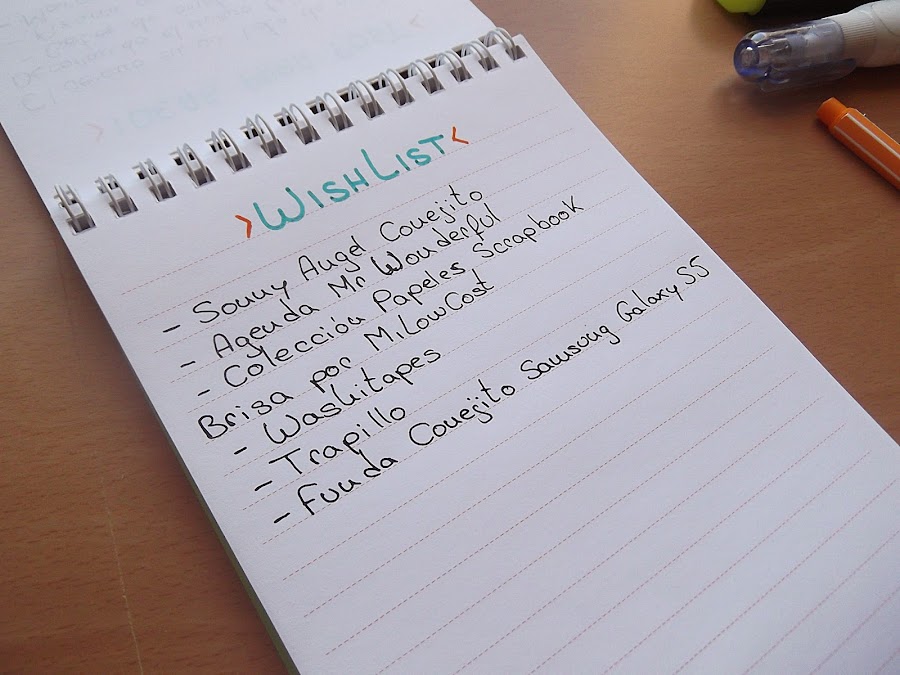 > WISHLIST <
- Sonny Angel Conejito
- Agenda Mr Wonderful
- Colección Papeles Scrapbook
Brisa por MiLowCost
- Washitapes
- Trapillo
- Funda Conejito Samsung Galaxy S5